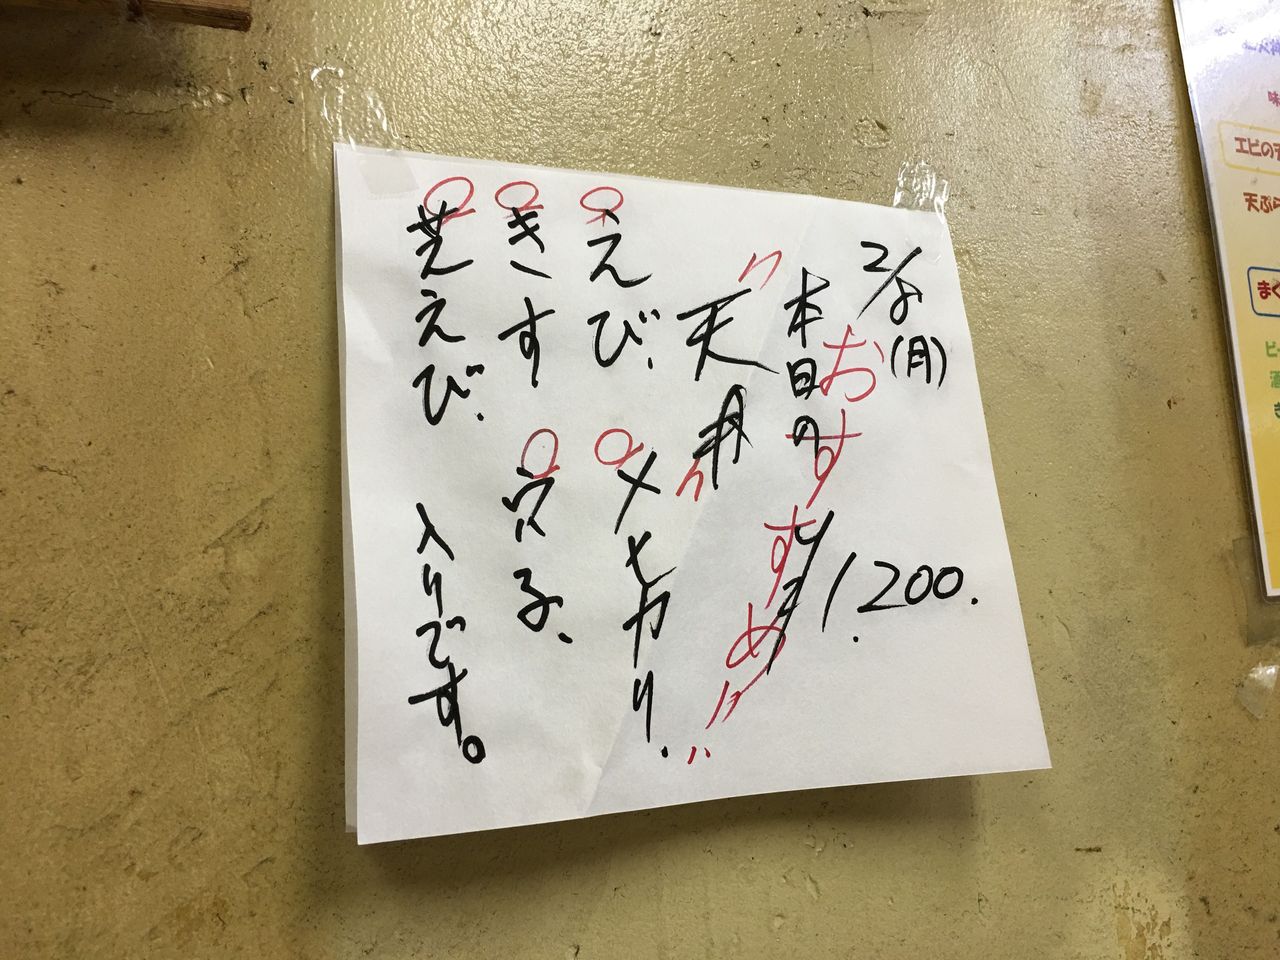 2/8(月)
本日の
おすすめ!!
¥1.200.
〝天丼〟
えび、メヒカリ、
きす 穴子、
芝えび、入りです。
エビの
天ぷら
まぐ